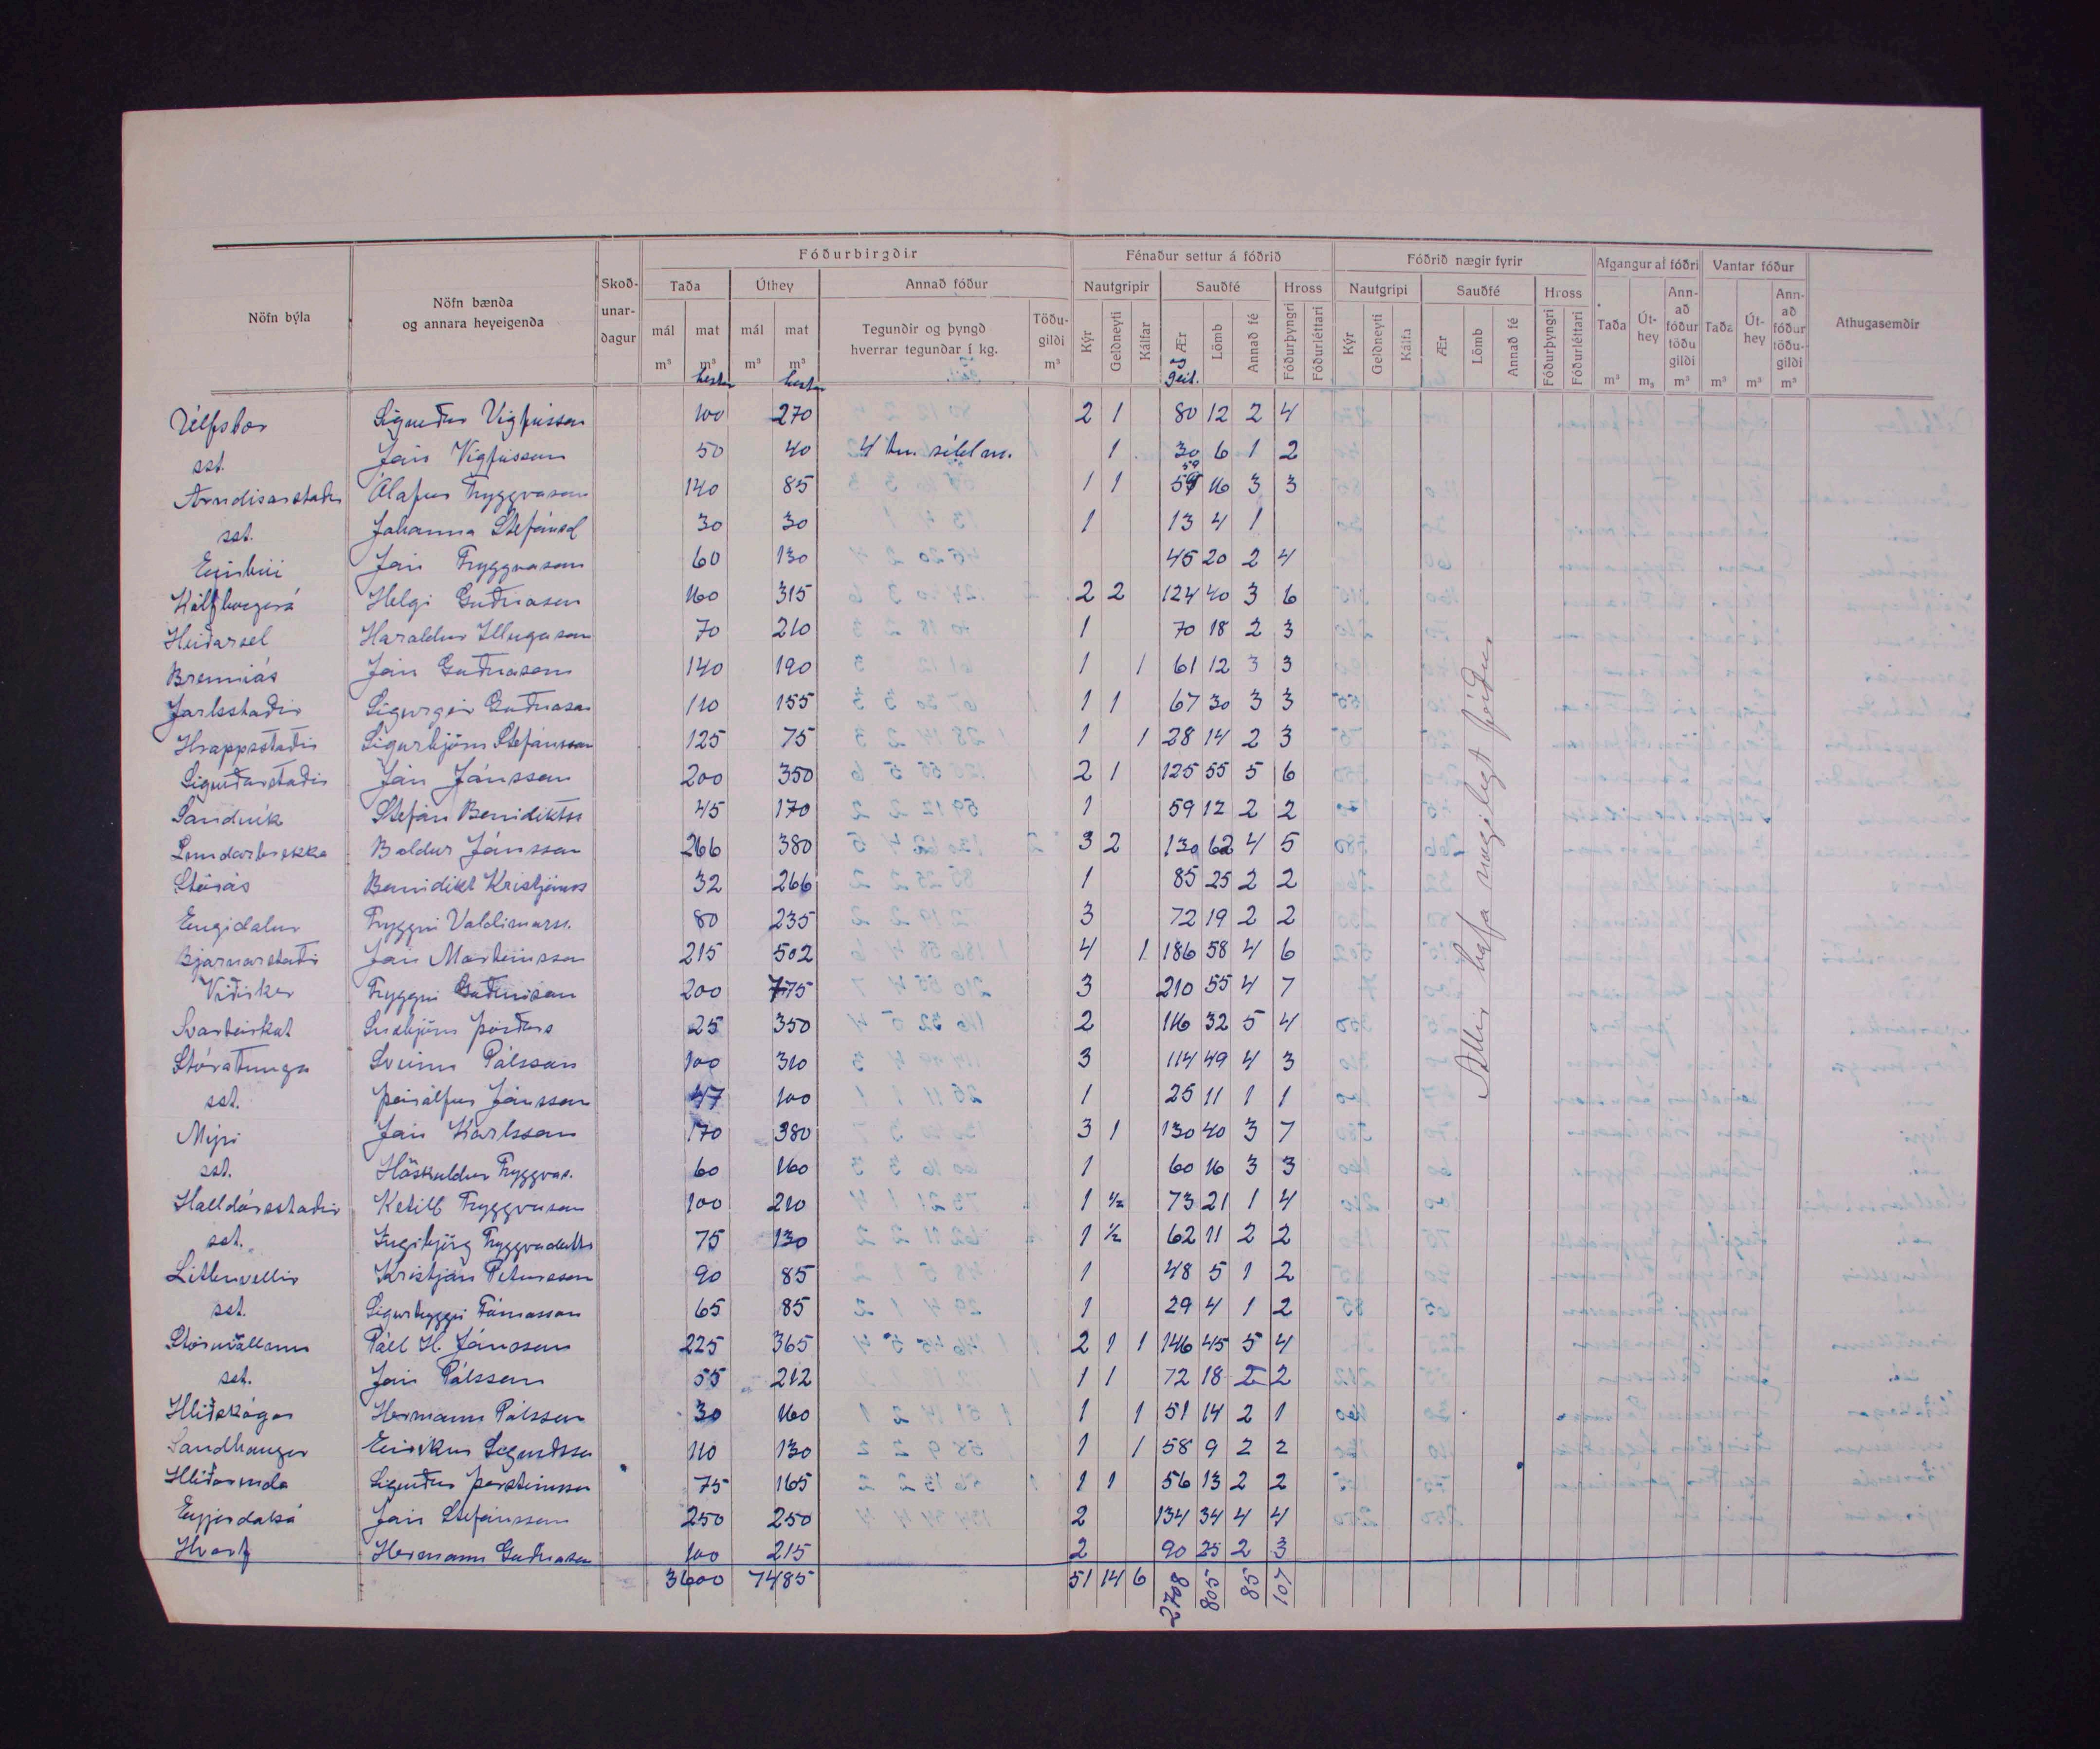 Fóðurbirgðir Fénaður settur á fóðrið Fóðrið nægir fyrir Afgangur af fóðri Vantar fóður
Nöfn býla Nöfn bænda og annara heyeigenda Skoð-unar-dagur Taða Úthey Annað fóður Nautgripir Sauðfé Hross Nautgripi Sauðfé Hross Taða Út-hey Ann-að fóður töðu gildi Taða Út-hey Ann-að fóður töðu-gildi Athugasemdir
mál m³ mat m³ mál m³ mat m³ Tegundir og þyngd hverrar tegundar í kg. Töðu-gildi m³ Kýr Geldneyti Kálfar Ær Lömb Annað fé Fóðurþyngri Fóðurléttari Kýr Geldneyti Kálfa Ær Lömb Annað fé Fóðurþyngri Fóðurléttari m³ m₃ m³ m³ m³ m³
hestar hestar geit.
Úlfsbær Sigurður Vigfússon 100 270 2 1 80 12 2 4
sst. Jón Vigfússon 50 40 4 tn. síld m. 1 30 6 1 2
Arndísarstaðir Ólafur Tryggvason 140 85 1 1 59 16 3 3
sst. Jóhanna Stefánsd 30 30 1 13 4 1
Einbúi Jón Tryggvason 60 130 45 20 2 4
Kálfborgará Helgi Guðnason 160 315 2 2 124 40 3 6
Heiðarsel Haraldur Illugason 70 210 1 70 18 2 3
Brenniás Jón Guðnason 140 190 1 1 61 12 3 3
Jarlsstaðir Sigurgeir Guðnason 110 155 1 1 67 30 3 3
Hrappstaðir Sigurbjörn Stefánsson 125 75 1 1 28 14 2 3
Sigurðarstaðir Jón Jónsson 200 350 2 1 125 55 5 6
Sandvík Stefán Benidiktss 45 170 1 59 12 2 2
Lundarbrekka Baldur Jónsson 266 380 3 2 130 62 4 5
Stórás Benidikt Kristjánss 32 266 1 85 25 2 2
Engidalur Tryggvi Valdimarss. 80 235 3 72 19 2 2
Bjarnarstaðir Jón Marteinsson 215 502 4 1 186 58 4 6
Víðiker Tryggvi Guðnason 200 775 3 210 55 4 7
Svartárkot Snæbjörn Þórðars 25 350 2 116 32 5 4
Stóratunga Sveinn Pálsson 100 310 3 114 49 4 3
sst. Þórólfur Jónsson 47 100 1 25 11 1 1
Mýri Jón Karlsson 170 380 3 1 130 40 3 7
sst. Höskuldur Tryggvas. 60 160 1 60 16 3 3
Halldórsstaðir Ketill Tryggvason 100 210 1 1/2 73 21 1 4
sst. Ingibjörg Tryggvadóttir 75 130 1 1/2 62 11 2 2
Litluvellir Kristján Pétursson 90 85 1 48 5 1 2
sst. Sigurtryggvi Tómasson 65 85 1 29 4 1 2
Stóruvellum Páll H. Jónsson 225 365 2 1 1 146 45 5 4
sst. Jón Pálsson 55 212 1 1 72 18 2 2
Hlíðskógar Hermann Pálsson 30 160 1 1 51 14 2 1
Sandhaugar Eiríkur Sigurðsson 110 130 1 1 58 9 2 2
Hlíðarenda Sigurður Þorsteinsson 75 165 1 1 56 13 2 2
Eyjardalsá Jón Stefánsson 250 250 2 134 34 4 4
Hvarf Hermann Guðnason 100 215 2 90 25 2 3
3600 7485 51 14 6 2708 805 85 107
Allir hafa nægilegt fóður